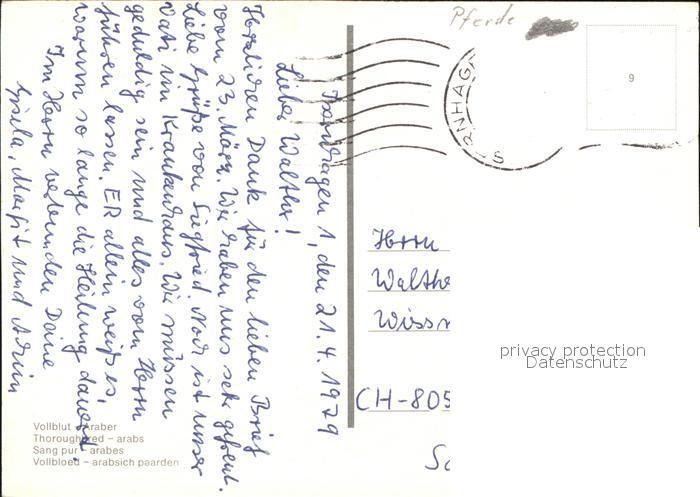 Pferde
RNHAG
S
9
1, den 21.4.1979
Lieber Walther!
Herzlichen Dank für den lieben Brief
vom 23. März. Wir haben uns sehr gefreut.
Liebe Grüße von Siegfried. Noch ist unser
Vati im Krankenhaus. Wir müssen
geduldig sein und alles vom Herrn
führen lassen. ER allein weiß es,
warum so lange die Heilung dauert.
Im Herrn verbunden Deine
Gisela, Margit und Armin
Herrn
Walthe
Wissm
CH-805
Sc
privacy protection
Datenschutz
Vollblut – Araber
Thoroughbred – arabs
Sang pur – arabes
Vollbloed – arabsich paarden